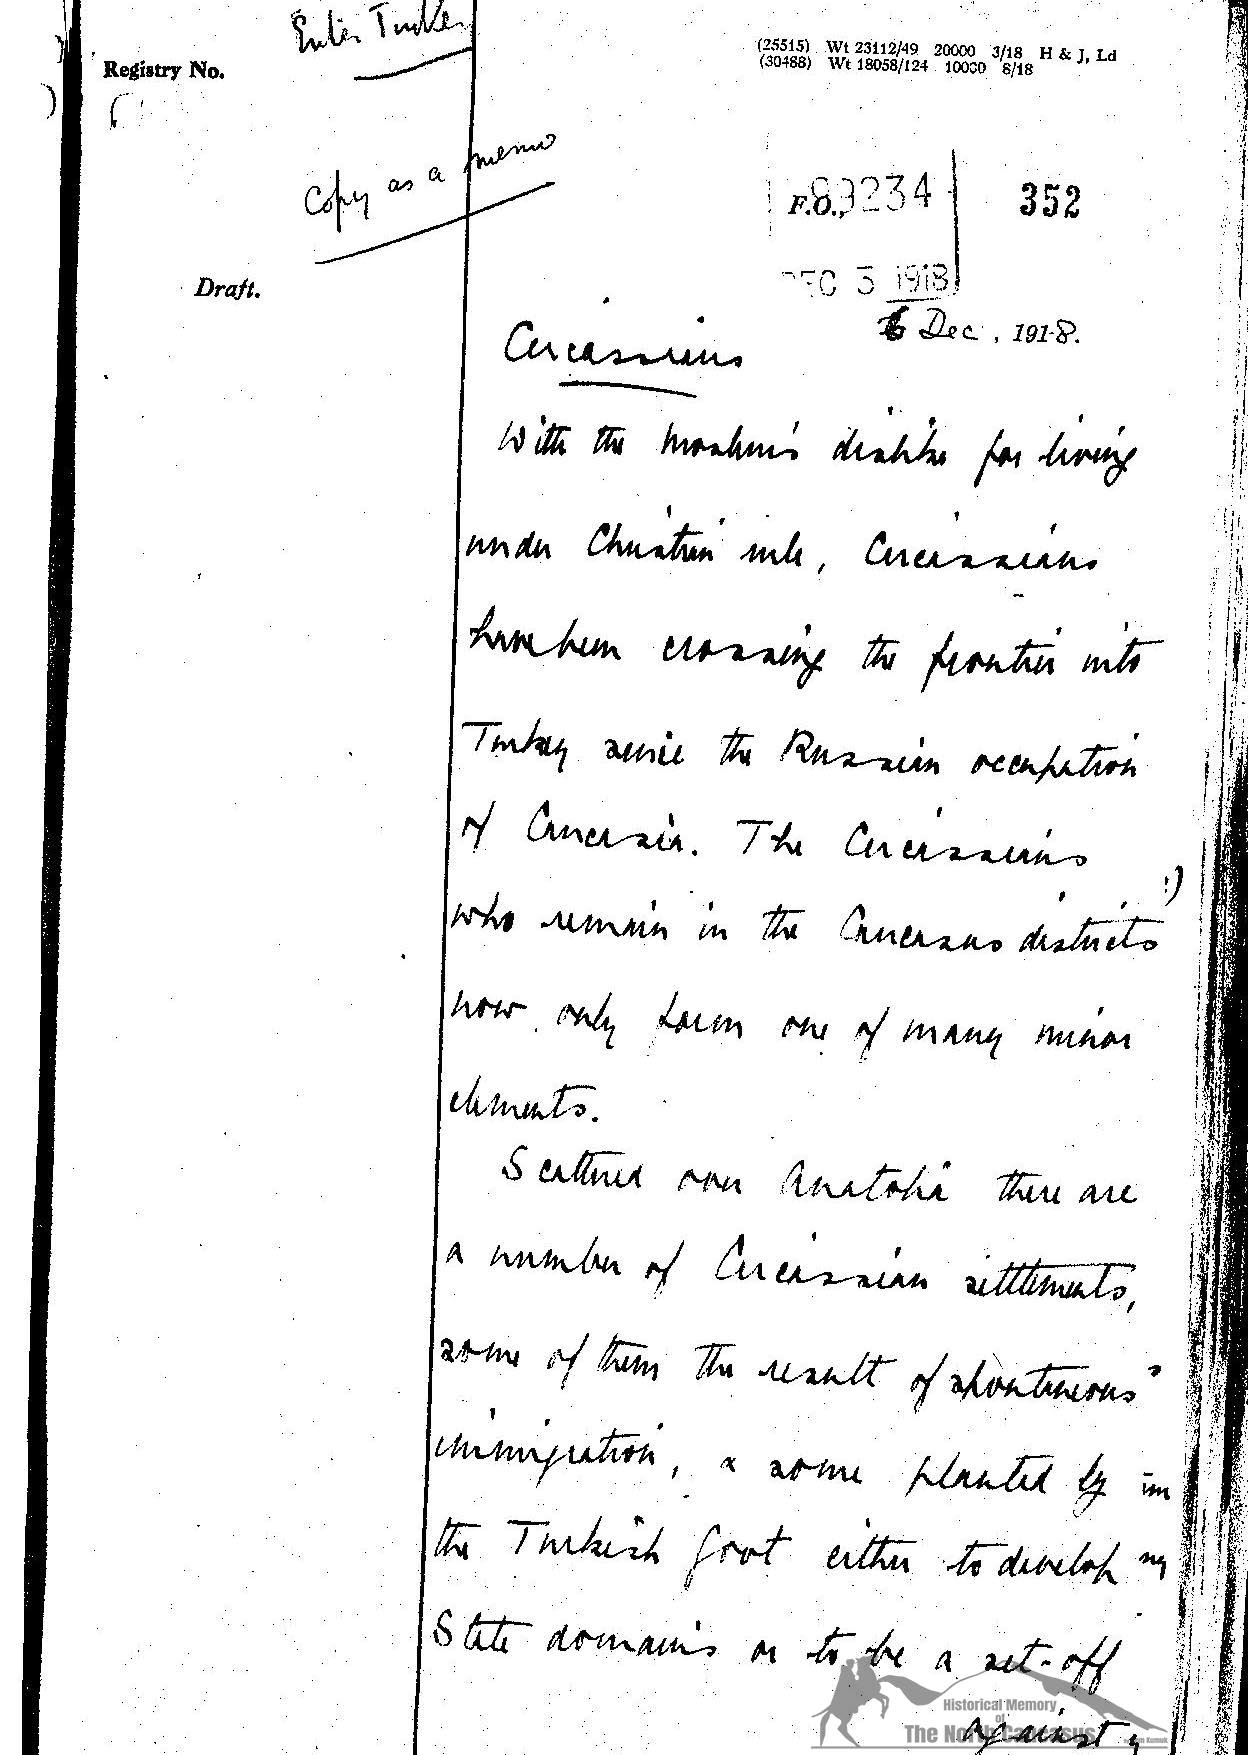 Enter Turkey
(25515) Wt 23112/49 20000 3/18 H & J, Ld
(30488) Wt 18058/124 10000 8/18
Registry No.
Copy as a memo
F.O., 89234
352
DEC 5 1918
Draft.
6 Dec, 1918.
Circassians
With the Moslem's dislike for living
under Christian rule, Circassians
have been crossing the frontier into
Turkey since the Russian occupation
of Caucasia. The Circassians
who remain in the Caucasus districts
now only form one of many minor
elements.
Scattered over Anatolia there are
a number of Circassian settlements,
some of them the result of spontaneous
immigration, & some planted by
the Turkish Govt either to develop
State domains or to be a set-off
against
Historical Memory
of
The North Caucasus